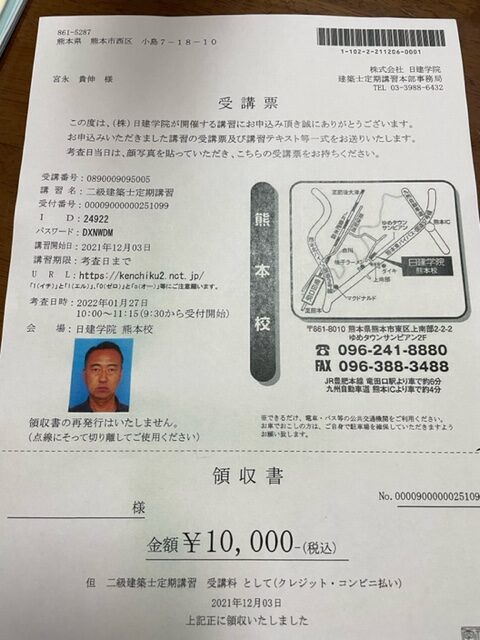 861-5287
熊本県 熊本市西区 小島7-18-10
宮永 貴伸 様
1-102-2-211206-0001
株式会社 日建学院
建築士定期講習本部事務局
TEL 03-3988-6432
受講票
この度は、(株)日建学院が開催する講習にお申込み頂き誠にありがとうございます。
お申込みいただきました講習の受講票及び講習テキスト等一式をお送りいたします。
考査日当日は、顔写真を貼っていただき、こちらの受講票をお持ちください。
受講番号:0890009095005
講習名:二級建築士定期講習
受付番号:00009000000251099
ID:24922
パスワード:DXNWDM
講習開始日:2021年12月03日
講習期限:考査日まで
URL:https://kenchiku2.nct.jp/
「1(イチ)」と「l(エル)」、「0(ゼロ)」と「o(オー)」等にご注意願います。
考査日時:2022年01月27日
10:00~11:15(9:30から受付開始)
会場:日建学院 熊本校
領収書の再発行はいたしません。
(点線にそって切り離してご使用ください)
熊本校
至肥後大津
ゆめタウン
サンピアン
熊本IC
日建学院
熊本校
ダイキ
上南部
マクドナルド
至熊本
〒861-8010 熊本県熊本市東区上南部2-2-2
ゆめタウンサンピアン2F
☎ 096-241-8880
FAX 096-388-3488
JR豊肥本線 竜田口駅より車で約6分
九州自動車道 熊本ICより車で約4分
※できるだけ、電車・バス等の公共交通機関をご利用ください。
お車でおこしの方は、ご自身で駐車場を確保していただきますよう
お願い致します。
領収書
様
No.0000900000025109
金額¥10,000-(税込)
但 二級建築士定期講習 受講料 として(クレジット・コンビニ払い)
2021年12月03日
上記正に領収いたしました